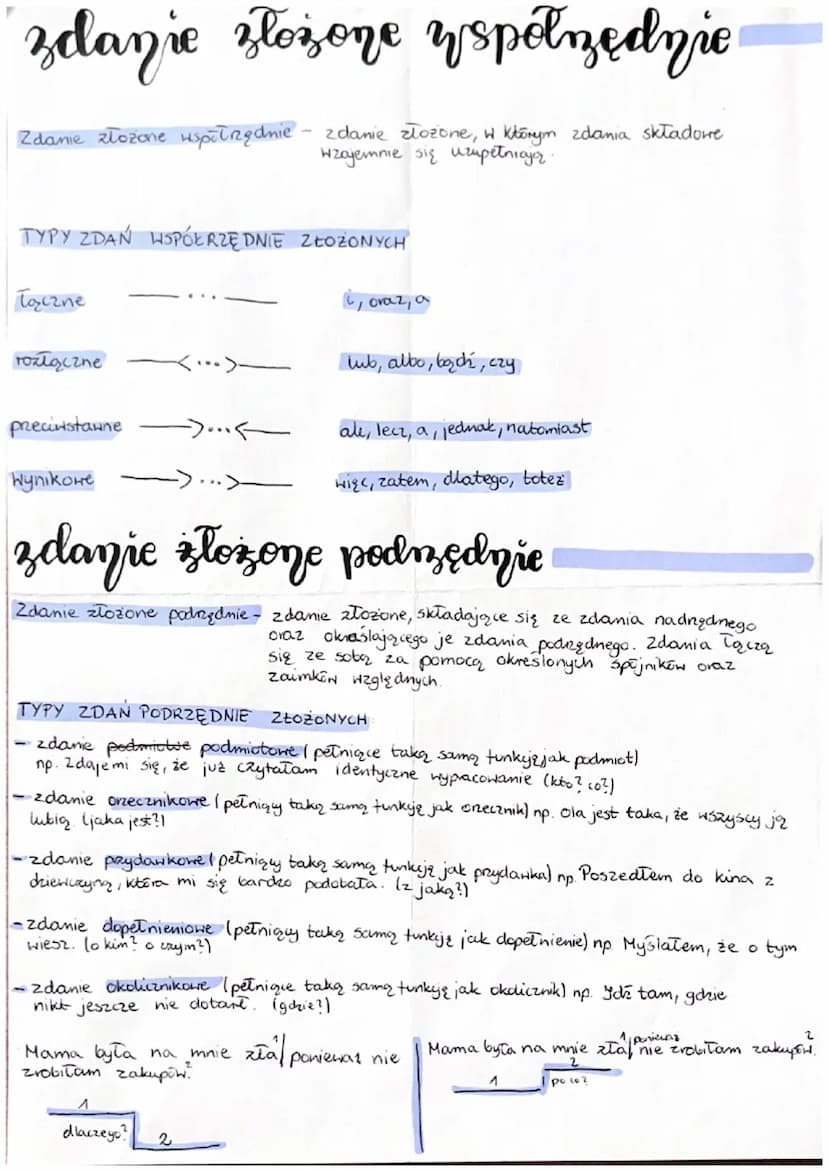 zdanie złożone współrzędnie
Zdanie złożone współrzędnie - zdanie złożone, w którym zdania składowe
wzajemnie się uzupełniają.
TYPY ZDAŃ WSPÓŁRZĘDNIE ZŁOŻONYCH
łączne — ... — i, oraz, a
rozłączne —<...>— lub, albo, bądź, czy
przeciwstawne —>...<— ale, lecz, a, jednak, natomiast
wynikowe —>...>— więc, zatem, dlatego, toteż
zdanie złożone podrzędnie
Zdanie złożone podrzędnie - zdanie złożone, składające się ze zdania nadrzędnego
oraz określającego je zdania podrzędnego. Zdania łączą
się ze sobą za pomocą określonych spójników oraz
zaimków względnych.
TYPY ZDAŃ PODRZĘDNIE ZŁOŻONYCH
- zdanie podmiotwe podmiotowe (pełniące taką samą funkcję jak podmiot)
np. Zdaje mi się, że już czytałam identyczne wypracowanie (kto? co?)
- zdanie orzecznikowe (pełniący taką samą funkcję jak orzecznik) np. Ola jest taka, że wszyscy ją
lubią (jaka jest?)
- zdanie przydawkowe (pełniący taką samą funkcję jak przydawka) np. Poszedłem do kina z
dziewczyną, która mi się bardzo podobała. (z jaką?)
- zdanie dopełnieniowe (pełniący taką samą funkcję jak dopełnienie) np. Myślałem, że o tym
wiesz. (o kim? o czym?)
- zdanie okolicznikowe (pełniące taką samą funkcję jak okolicznik) np. Idź tam, gdzie
nikt jeszcze nie dotarł. (gdzie?)
Mama była na mnie zła/ 1 ponieważ nie
zrobiłam zakupów. 2
1
dlaczego?
2
Mama była na mnie zła/ 1 ponieważ nie zrobiłam zakupów. 2
2
1
po co?